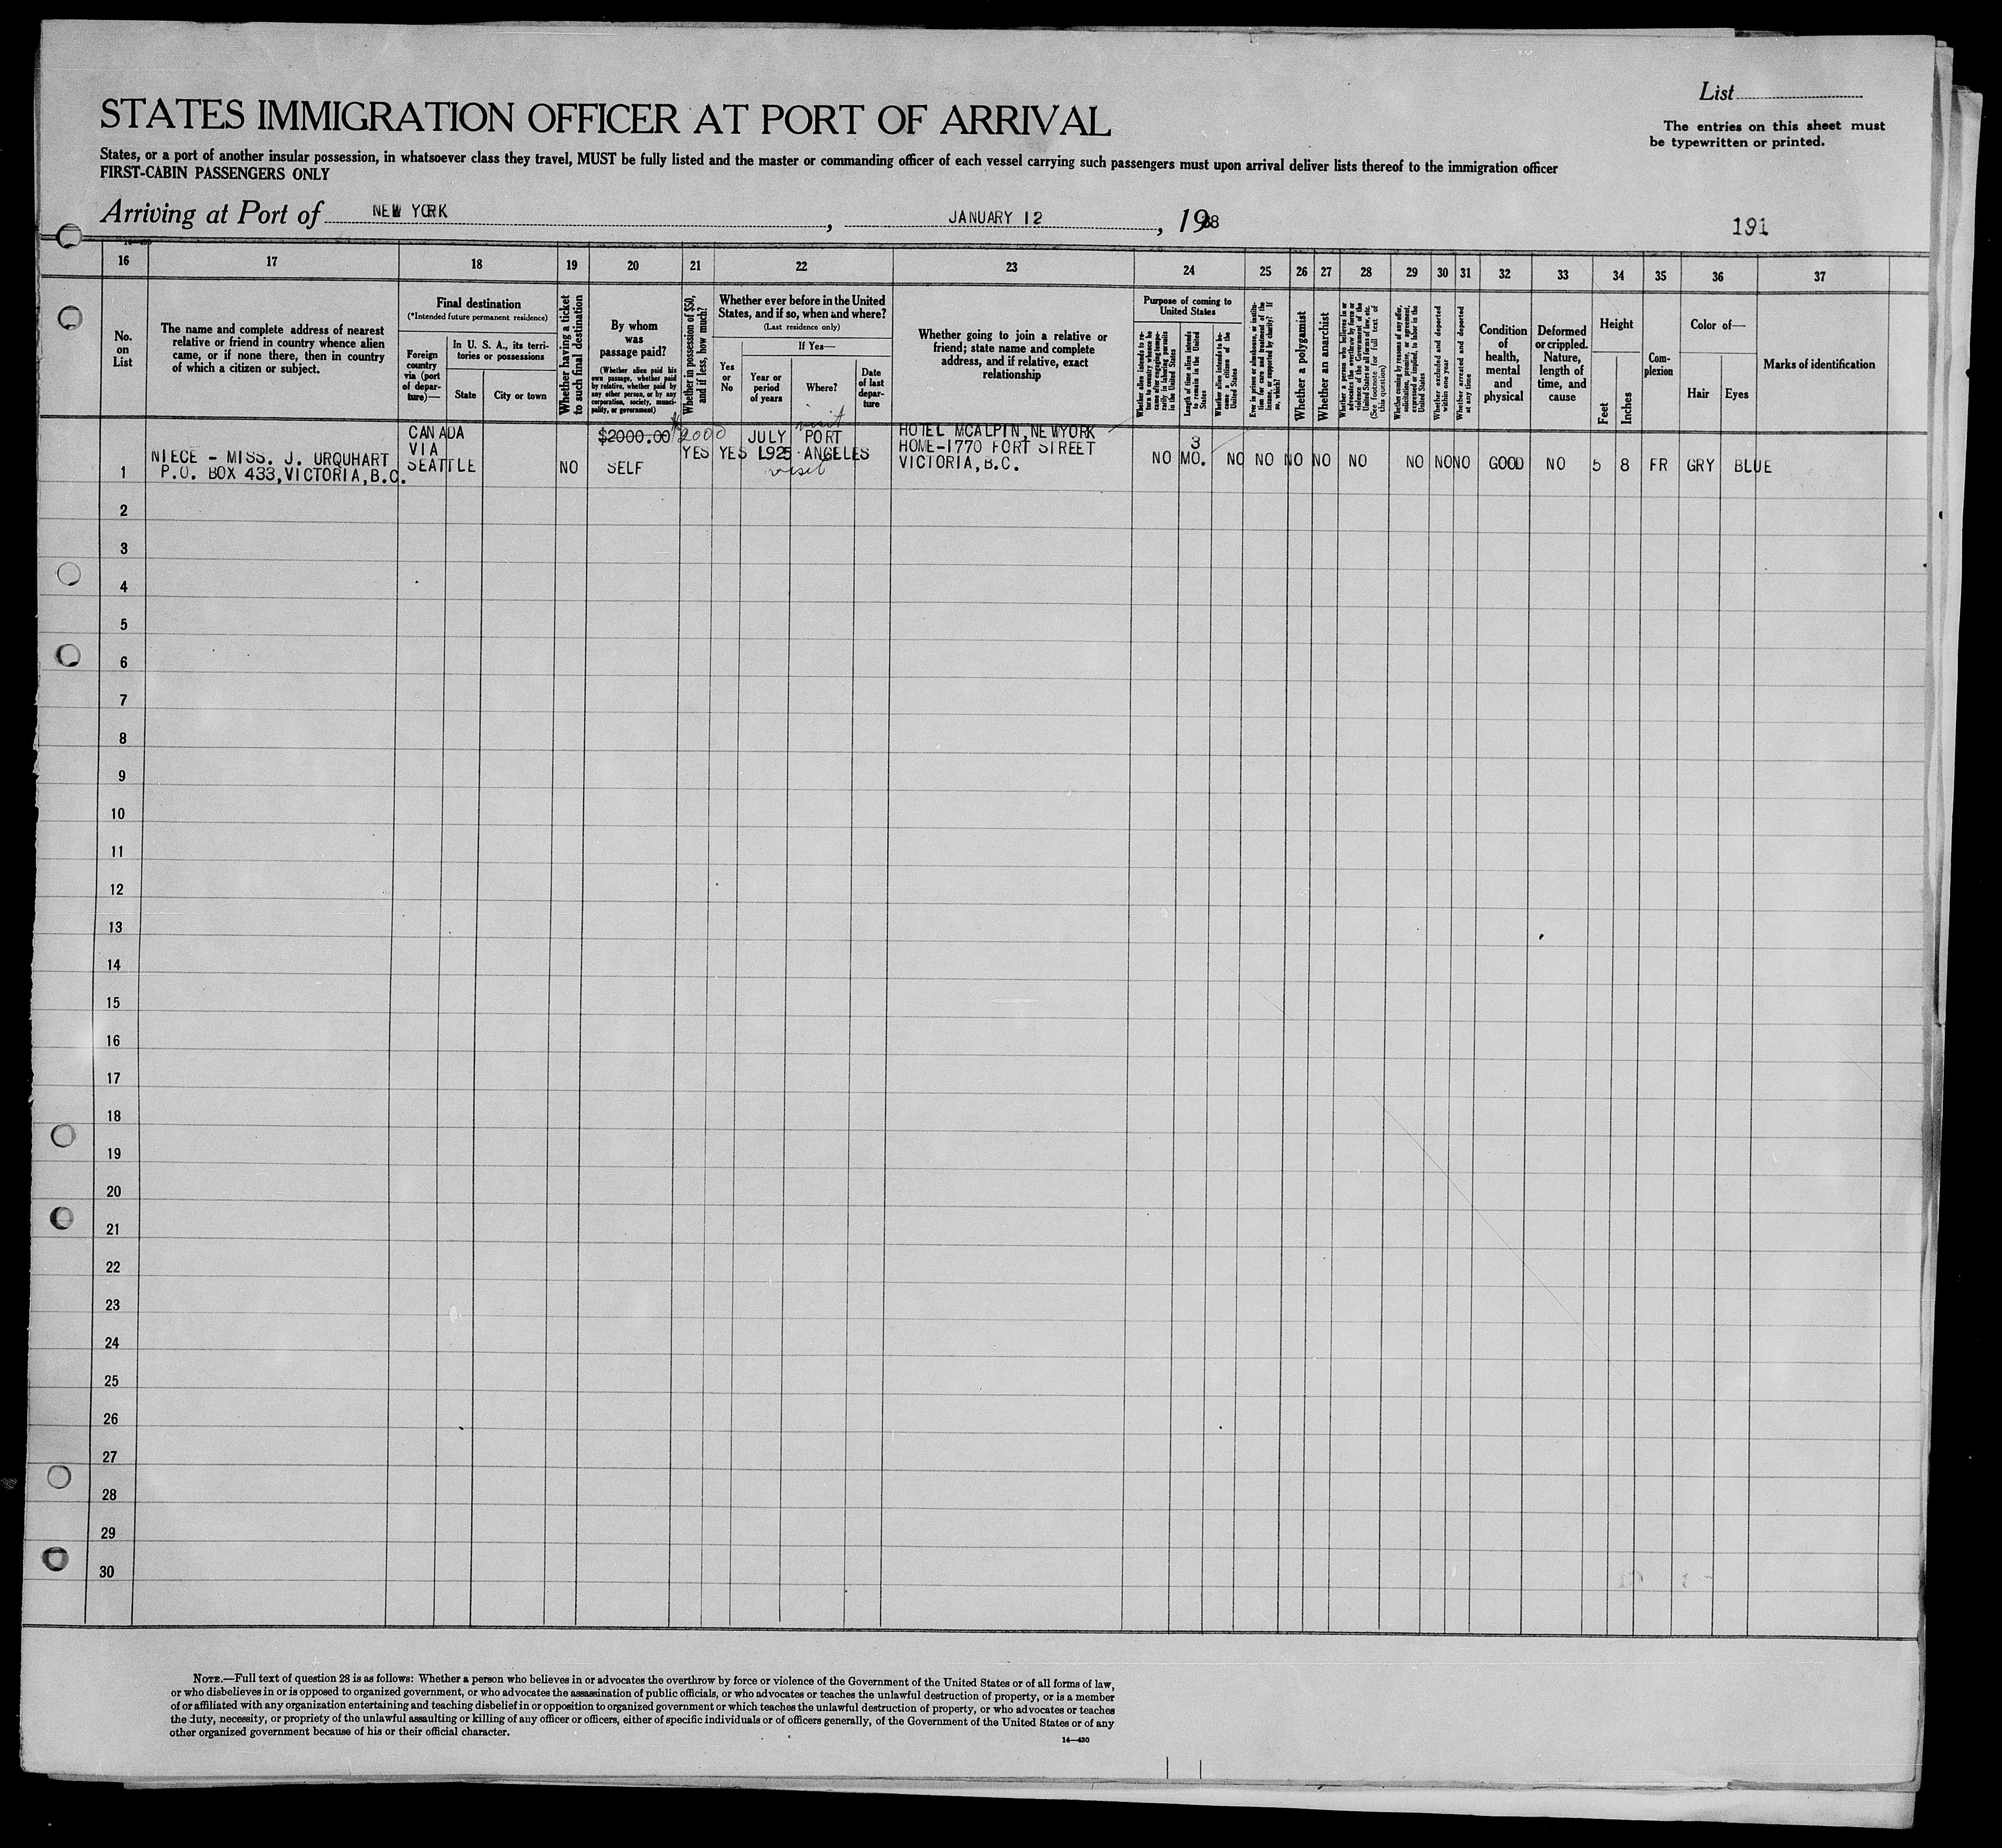 List
The entries on this sheet must
be typewritten or printed.
STATES IMMIGRATION OFFICER AT PORT OF ARRIVAL
States, or a port of another insular possession, in whatsoever class they travel, MUST be fully listed and the master or commanding officer of each vessel carrying such passengers must upon arrival deliver lists thereof to the immigration officer
FIRST-CABIN PASSENGERS ONLY
Arriving at Port of NEW YORK, JANUARY 12, 1938
191
16 17 18 19 20 21 22 23 24 25 26 27 28 29 30 31 32 33 34 35 36 37
No.
on
List
The name and complete address of nearest
relative or friend in country whence alien
came, or if none there, then in country
of which a citizen or subject.
Final destination
(*Intended future permanent residence)
Foreign
country
via (port
of depar-
ture)—
In U. S. A., its terri-
tories or possessions
State
City or town
Whether having a ticket
to such final destination
By whom
was
passage paid?
(Whether alien paid his
own passage, whether paid
by relative, whether paid by
any other person, or by any
corporation, society, munici-
pality, or government)
Whether in possession of $50,
and if less, how much?
Whether ever before in the United
States, and if so, when and where?
(Last residence only)
Yes
or
No
If Yes—
Year or
period
of years
Where?
Date
of last
depar-
ture
Whether going to join a relative or
friend; state name and complete
address, and if relative, exact
relationship
Purpose of coming to
United States
Whether alien intends to re-
turn to country whence he
came after engaging tempo-
rarily in laboring pursuits
in the United States
Length of time alien intends
to remain in the United
States
Whether alien intends to be-
come a citizen of the
United States
Ever in prison or almshouse, or institu-
tion for care and treatment of the
insane, or supported by charity? If
so, which?
Whether a polygamist
Whether an anarchist
Whether a person who believes in or
advocates the overthrow by force or
violence of the Government of the
United States or all forms of law, etc.
(See footnote for full text of
this question)
Whether coming by reasons of any offer,
solicitation, promise, or agreement,
expressed or implied, to labor in the
United States
Whether excluded and deported
within one year
Whether arrested and deported
at any time
Condition
of
health,
mental
and
physical
Deformed
or crippled.
Nature,
length of
time, and
cause
Height
Feet
Inches
Com-
plexion
Color of—
Hair
Eyes
Marks of identification
1
NIECE - MISS. J. URQUHART
P.O. BOX 433, VICTORIA, B.C.
CANADA
VIA
SEATTLE
NO
$2000.00
SELF
$2000
YES
YES
JULY
1925
visit
PORT
ANGELES
visit
HOTEL MCALPIN, NEWYORK
HOME-1770 FORT STREET
VICTORIA, B.C.
NO
3
MO.
NO NO NO NO NO NO NO NO GOOD NO 5 8 FR GRY BLUE
2
3
4
5
6
7
8
9
10
11
12
13
14
15
16
17
18
19
20
21
22
23
24
25
26
27
28
29
30
NOTE.—Full text of question 28 is as follows: Whether a person who believes in or advocates the overthrow by force or violence of the Government of the United States or of all forms of law,
or who disbelieves in or is opposed to organized government, or who advocates the assassination of public officials, or who advocates or teaches the unlawful destruction of property, or is a member
of or affiliated with any organization entertaining and teaching disbelief in or opposition to organized government or which teaches the unlawful destruction of property, or who advocates or teaches
the duty, necessity, or propriety of the unlawful assaulting or killing of any officer or officers, either of specific individuals or of officers generally, of the Government of the United States or of any
other organized government because of his or their official character.
14—430